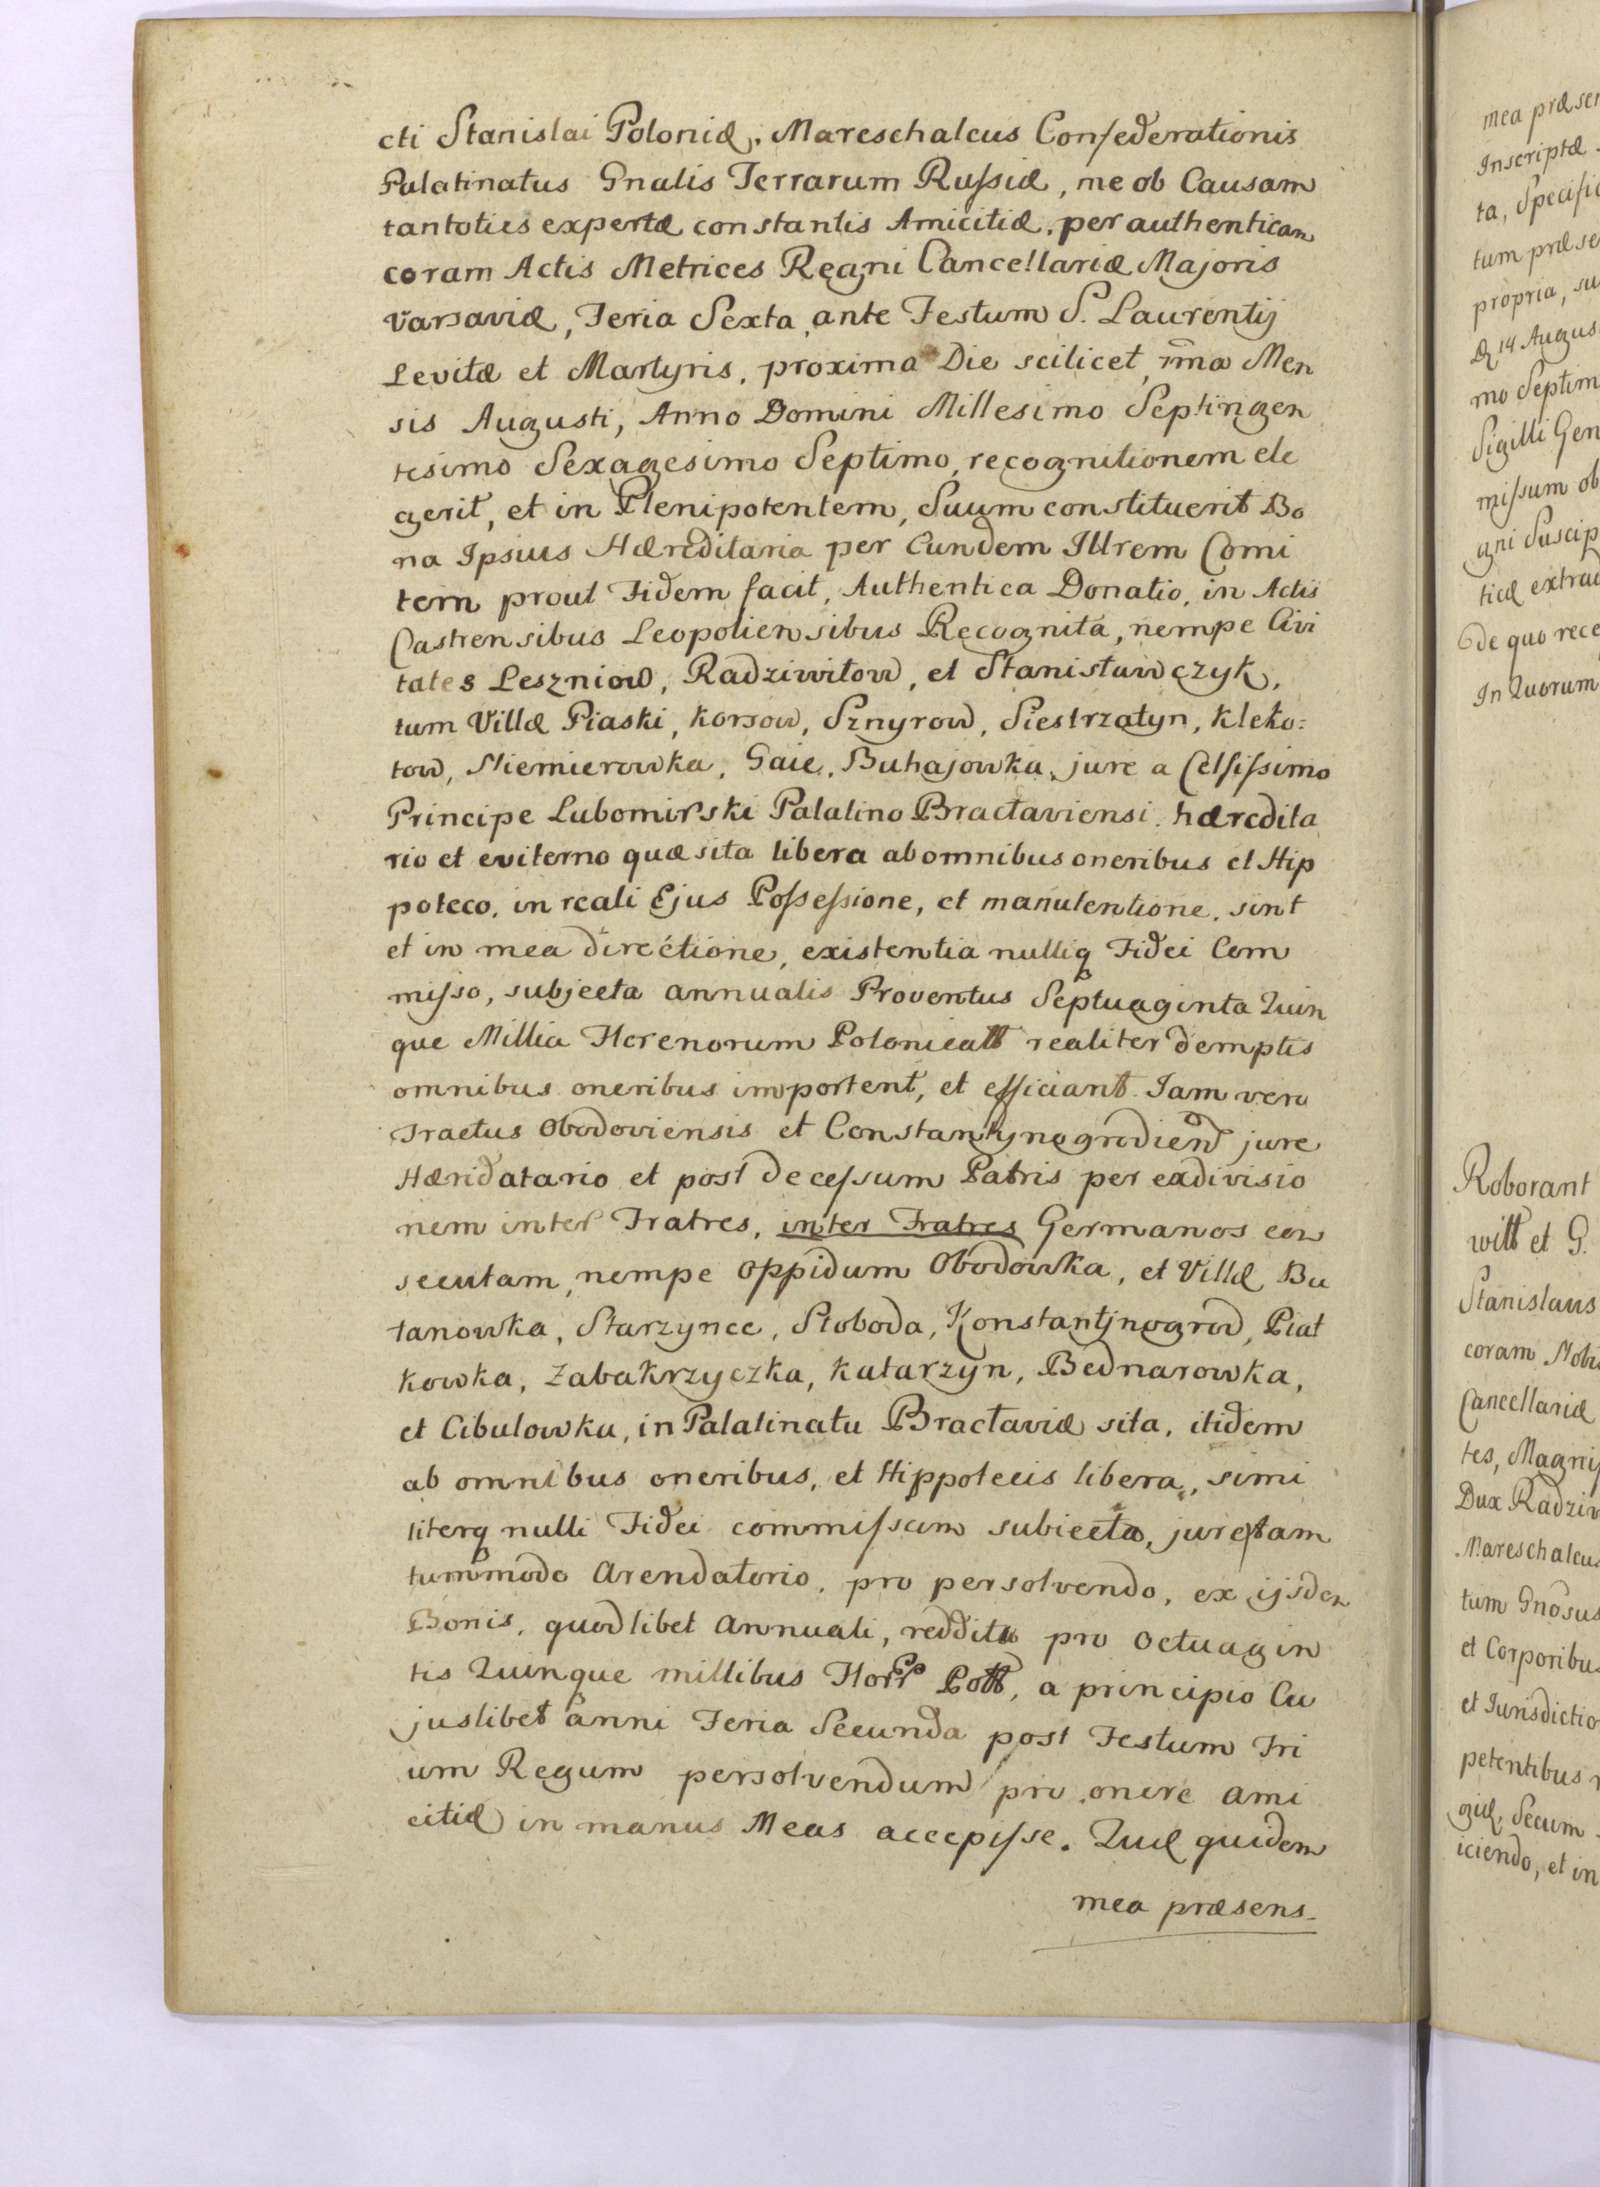 cti Stanislai Poloniæ. Mareschalcus Confederationis
Palatinatus Gnalis Terrarum Russiæ, me ob Causam
tantoties expertæ constantis Amicitiæ. per authenticam
coram Actis Metrices Regni Cancellariæ Majoris
Varsaviæ, Feria Sexta ante Festum S. Laurentij
Levitæ et Martyris, proxima Die scilicet 7ma Men
sis Augusti, Anno Domini Millesimo Septingen
tesimo Sexagesimo Septimo, recognitionem ele
gerit, et in Plenipotentem, Suum constituerit Bo
na Ipsius Hæreditaria per Eundem Illrem Comi
tem prout Fidem facit, Authentica Donatio, in Actis
Castrensibus Leopoliensibus Recognita, nempe Civi
tates Leszniow, Radziwiłow, et Stanisławczyk,
tum Villæ Piaski, Korsow, Sznyrow, Siestrzatyn, Kleko:
tow, Niemierowka, Gaie, Buhajowka, jure a Celsissimo
Principe Lubomirski Palatino Bractaviensi. hæredita
rio et eviterno quæsita libera ab omnibus oneribus et Hip
poteco, in reali Ejus Possessione, et manutentione, sint
et in mea directione, existentia nulliq Fidei Com
misso, subjecta annualis Proventus Septuaginta Quin
que Millia Florenorum Polonicall realiter demptis
omnibus oneribus important, et efficiant. Iam vero
Tractus Obodoviensis et Constantynogrodiens jure
Hæridatario et post decessum Patris per exdivisio
nem inter Fratres, inter Fratres Germanos con
secutam, nempe Oppidum Obodowka, et Villæ Bu
tanowka, Starzynce, Słoboda, Konstantjnogrod, Piat
kowka, Zabakrzyczka, Katarzyn, Bednarowka,
et Cibulowka, in Palatinatu Bractaviæ sita, itidem
ab omnibus oneribus, et Hippotecis libera, simi
literq nulli Fidei commissum subiecta, jure tam
tummodo Arendatorio, pro persolvendo, ex ijsdem
Bonis, quodlibet Annuali, reddita pro Octuagin
tis Quinque millibus Florr Poll, a principio Cu
juslibet anni Feria Secunda post Festum Tri
um Regum persolvendum pro onere ami
citiæ in manus Meas accepisse. Quæ quidem
mea præsens.
mea præsen
Inscriptæ
ta, Specific
tum præse
propria, su
Æ 14 August
mo Septim
Sigilli Gen
missum ob
gni Suscip
ticæ extrad
de quo rece
In Quorum
Roborant
witt et G.
Stanislaus
coram Nobi
Cancellariæ
tes, Magnif
Dux Radziw
Mareschalcus
tum Gnosus
et Corporibus
et Iurisdictio
petentibus
giæ, Secum
iciendo, et in